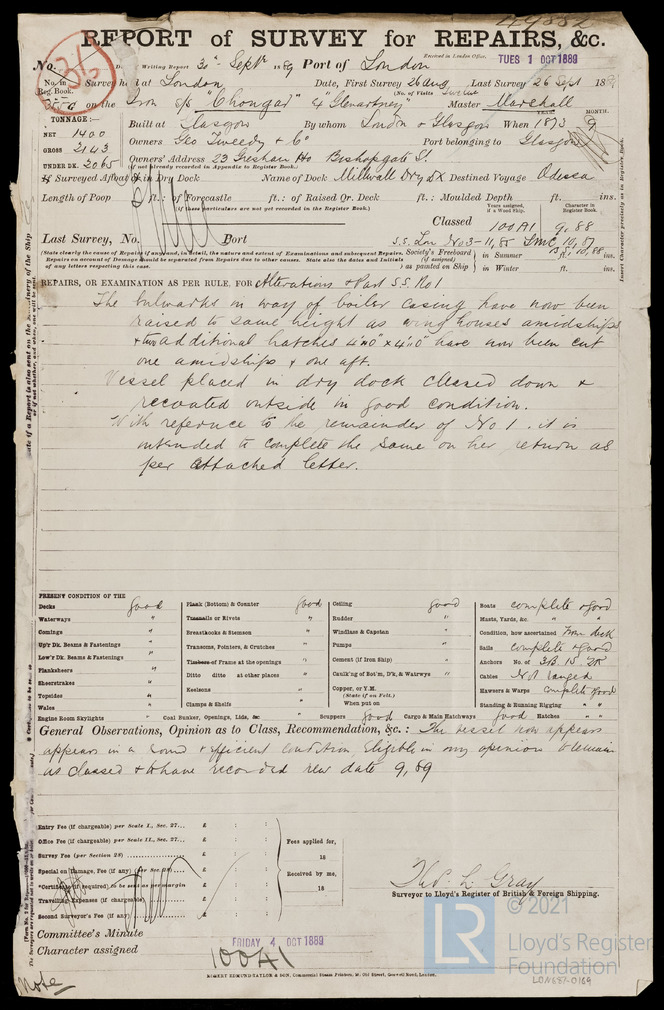 49882
REPORT of SURVEY for REPAIRS, &c.
No. Date of Writing Report 30th Septr 1889 Port of London Received in London Office, TUES 1 OCT 1889
No. in Reg. Book. Survey held at London Date, First Survey 26 aug Last Survey 26 Sept 188
(No. of Visits Twelve
on the Iron S/s "Chongar" "Glenartney" Master Marshall
TONNAGE:— Built at Glasgow By whom London & Glasgow When 1873 9 YEAR. MONTH.
NET 1400
GROSS 2143 Owners Geo Tweedy & Co Port belonging to Glasgow
UNDER DK. 2065 Owners' Address 23 Gresham Ho Bishopsgate St.
(if not already recorded in Appendix to Register Book.)
If Surveyed Afloat or in Dry Dock Name of Dock Millwall Dry Dx Destined Voyage Odessa
Length of Poop ft.: of Forecastle ft.: of Raised Qr. Deck ft.: Moulded Depth ft. ins.
(if these particulars are not yet recorded in the Register Book.)
Years assigned, if a Wood Ship. Character in Register Book.
Classed 100A1 9,88
Last Survey, No. Port S.S. Lon No3-11,85 LMC 10,87
(State clearly the cause of Repairs if any, and, in detail, the nature and extent of Examinations and subsequent Repairs.
Repairs on account of Damage should be separated from Repairs due to other causes. State also the dates and initials
of any letters respecting this case.
Society's Freeboard (if assigned) as painted on Ship in Summer ft. ins.
in Winter ft. ins.
REPAIRS, OR EXAMINATION AS PER RULE, FOR Alterations & Part S.S. No 1
The bulwarks in way of boiler casing have now been
raised to same height as wing houses amidships
& two additional hatches 4'.0" x 4'.0" have now been cut
one amidships & one aft.
Vessel placed in dry dock cleaned down &
recoated outside in good condition.
With reference to the remainder of No 1. it is
intended to complete the same on her return as
per attached letter.
PRESENT CONDITION OF THE
Decks good
Waterways "
Comings "
Up'r Dk. Beams & Fastenings "
Low'r Dk. Beams & Fastenings "
Planksheers "
Sheerstrakes "
Topsides "
Wales "
Engine Room Skylights "
Plank (Bottom) & Counter good
Treenails or Rivets "
Breasthooks & Stemson "
Transoms, Pointers, & Crutches "
Timbers or Frame at the openings "
Ditto ditto at other places "
Keelsons "
Clamps & Shelfs "
Coal Bunker, Openings, Lids, &c "
Ceiling good
Rudder "
Windlass & Capstan "
Pumps "
Cement (if Iron Ship) "
Caulk'ng of Bot'm, D'k, & Watrwys "
Copper, or Y.M.
(State if on Felt.)
When put on
Scuppers good Cargo & Main Hatchways good Hatches "
Boats complete & good
Masts, Yards, &c. "
Condition, how ascertained from deck
Sails complete & good
Anchors No. of 3B. 1S. 2K
Cables Not ranged
Hawsers & Warps complete good
Standing & Running Rigging "
General Observations, Opinion as to Class, Recommendation, &c.: This vessel now appears
appears in a sound & efficient condition eligible in my opinion to remain
as classed & to have recorded new date 9,89
Entry Fee (if chargeable) per Scale I., Sec. 27... £ : :
Office Fee (if chargeable) per Scale II., Sec. 27... £ : :
Survey Fee (per Section 28) ... £ : :
Special on Damage, Fee (if any) (per Sec. 28) ... £ : :
*Certificate (if required) to be sent as per margin £ : :
Travelling Expenses (if chargeable) £ : :
Second Surveyor's Fee (if any) £ : :
Fees applied for,
18
Received by me,
18
Thos L. Gray
Surveyor to Lloyd's Register of British & Foreign Shipping.
Committee's Minute FRIDAY 4 OCT 1889
Character assigned 100A1
ROBERT EDMUND TAYLOR & SON, Commercial Steam Printers, 19, Old Street, Goswell Road, London.
Note
LR
© 2021
Lloyd's Register
Foundation
LON687-0169